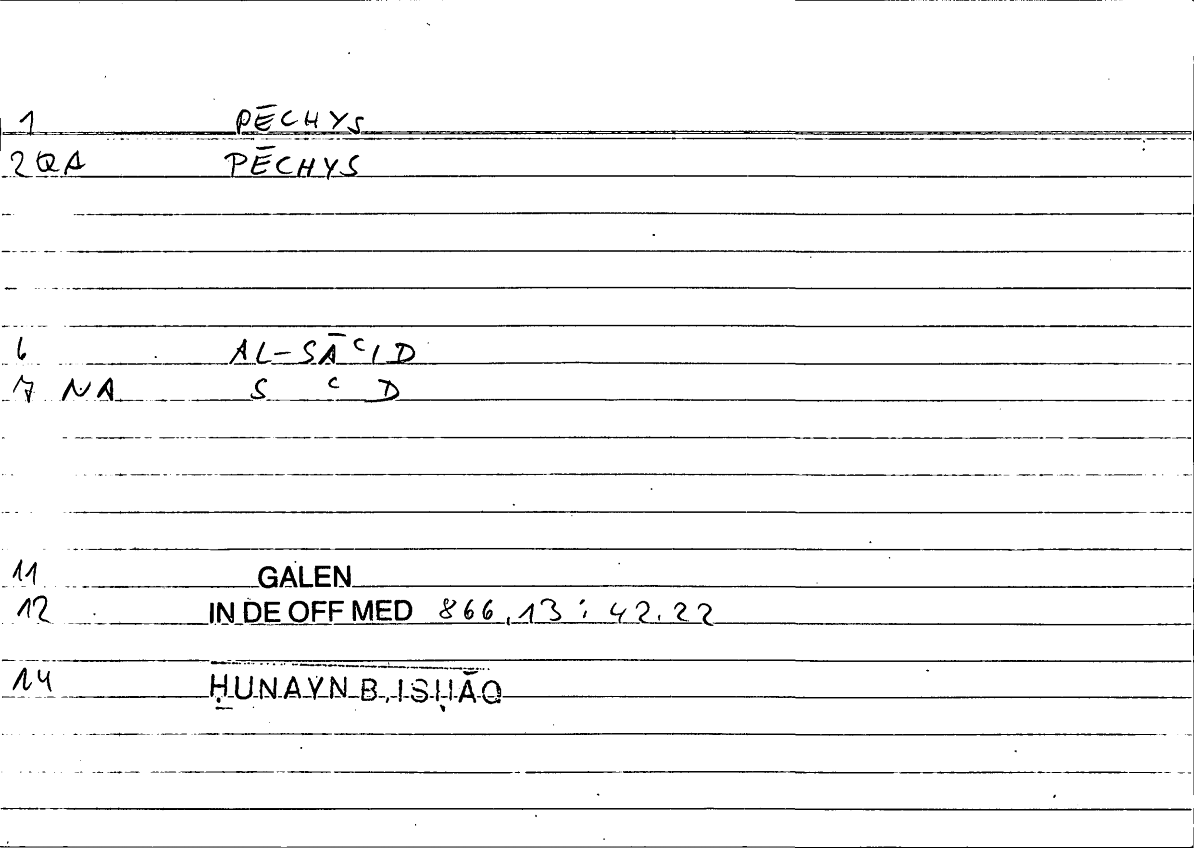 1 PĒCHYS
2 QA PĒCHYS
6 AL-SĀʿID
7 NA S ʿ D
11 GALEN
12 IN DE OFF MED 866,13 : 42.22
14 ḤUNAYN B. ISḤĀQ